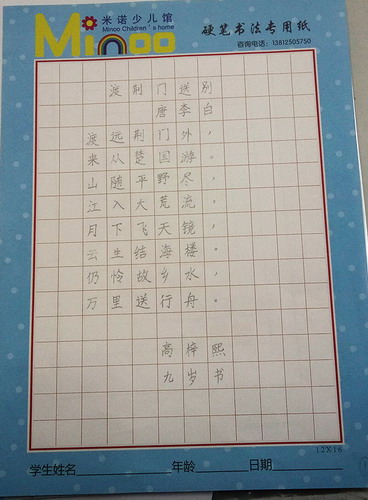 米诺少儿馆
Minoo Children's home
Minoo
硬笔书法专用纸
咨询电话：13812505750
渡荆门送别
唐李白
渡远荆门外，
来从楚国游。
山随平野尽，
江入大荒流。
月下飞天镜，
云生结海楼。
仍怜故乡水，
万里送行舟。
高梓熙
九岁书
12X16
学生姓名 年龄 日期